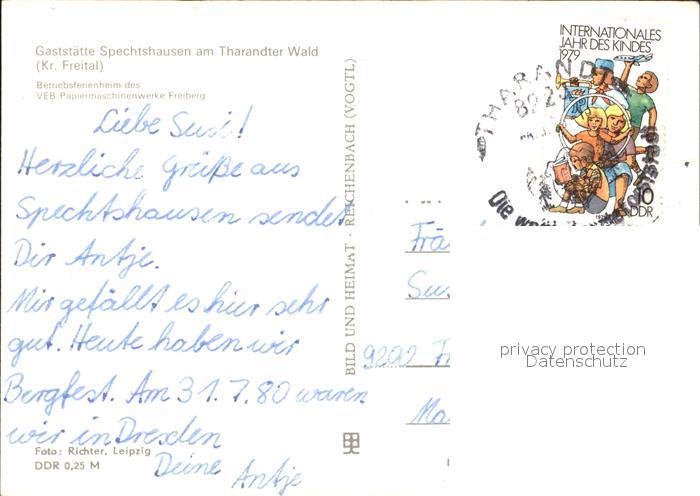 Gaststätte Spechtshausen am Tharandter Wald
(Kr. Freital)
Betriebsferienheim des
VEB Papiermaschinenwerke Freiberg
Liebe Susi!
Herzliche Grüße aus
Spechtshausen sendet
Dir Antje.
Mir gefällt es hier sehr
gut. Heute haben wir
Bergfest. Am 31.7.80 waren
wir in Dresden
Deine Antje
Foto: Richter, Leipzig
DDR 0,25 M
BILD UND HEIMAT · REICHENBACH (VOGTL)
INTERNATIONALES
JAHR DES KINDES
1979
10
DDR
THARANDT
822
Die
Frä
Sus
9202 Fr
Ma
privacy protection
Datenschutz